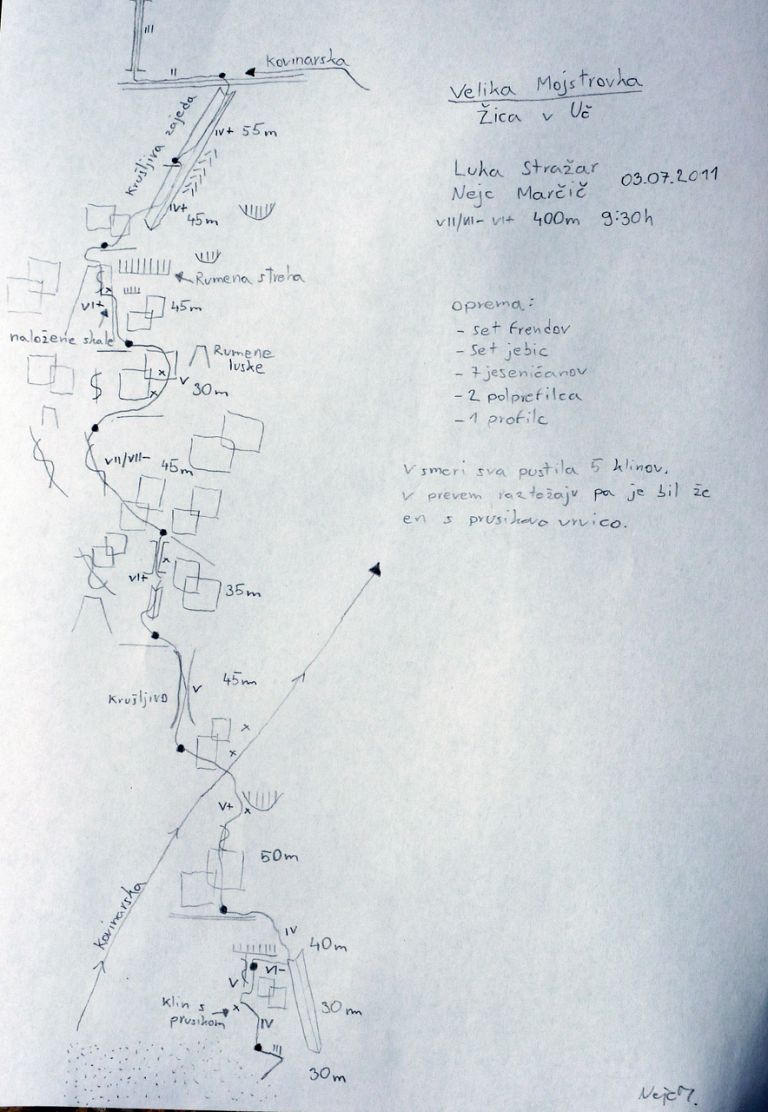 III
II
Kovinarska
Krušljiva zajeda
IV+ 55m
IV+
45m
Rumena streha
VI+
45m
naložene skale
Rumene
luske
V
30m
VII/VII-
45m
VI+
35m
45m
Krušljivo
V
V+
50m
Kovinarska
IV
40m
VI-
V
Klin s
prusikom
IV
30m
III
30m
Velika Mojstrovka
Žica v Uč
Luka Stražar
Nejc Marčič
03.07.2011
VII/VII- VI+ 400m 9:30h
oprema:
- set frendov
- set jebic
- 7 jeseničanov
- 2 polprofilca
- 1 profilc
V smeri sva pustila 5 klinov,
v prevem raztežaju pa je bil že
en s prusikovo vrvico.
Nejc M.